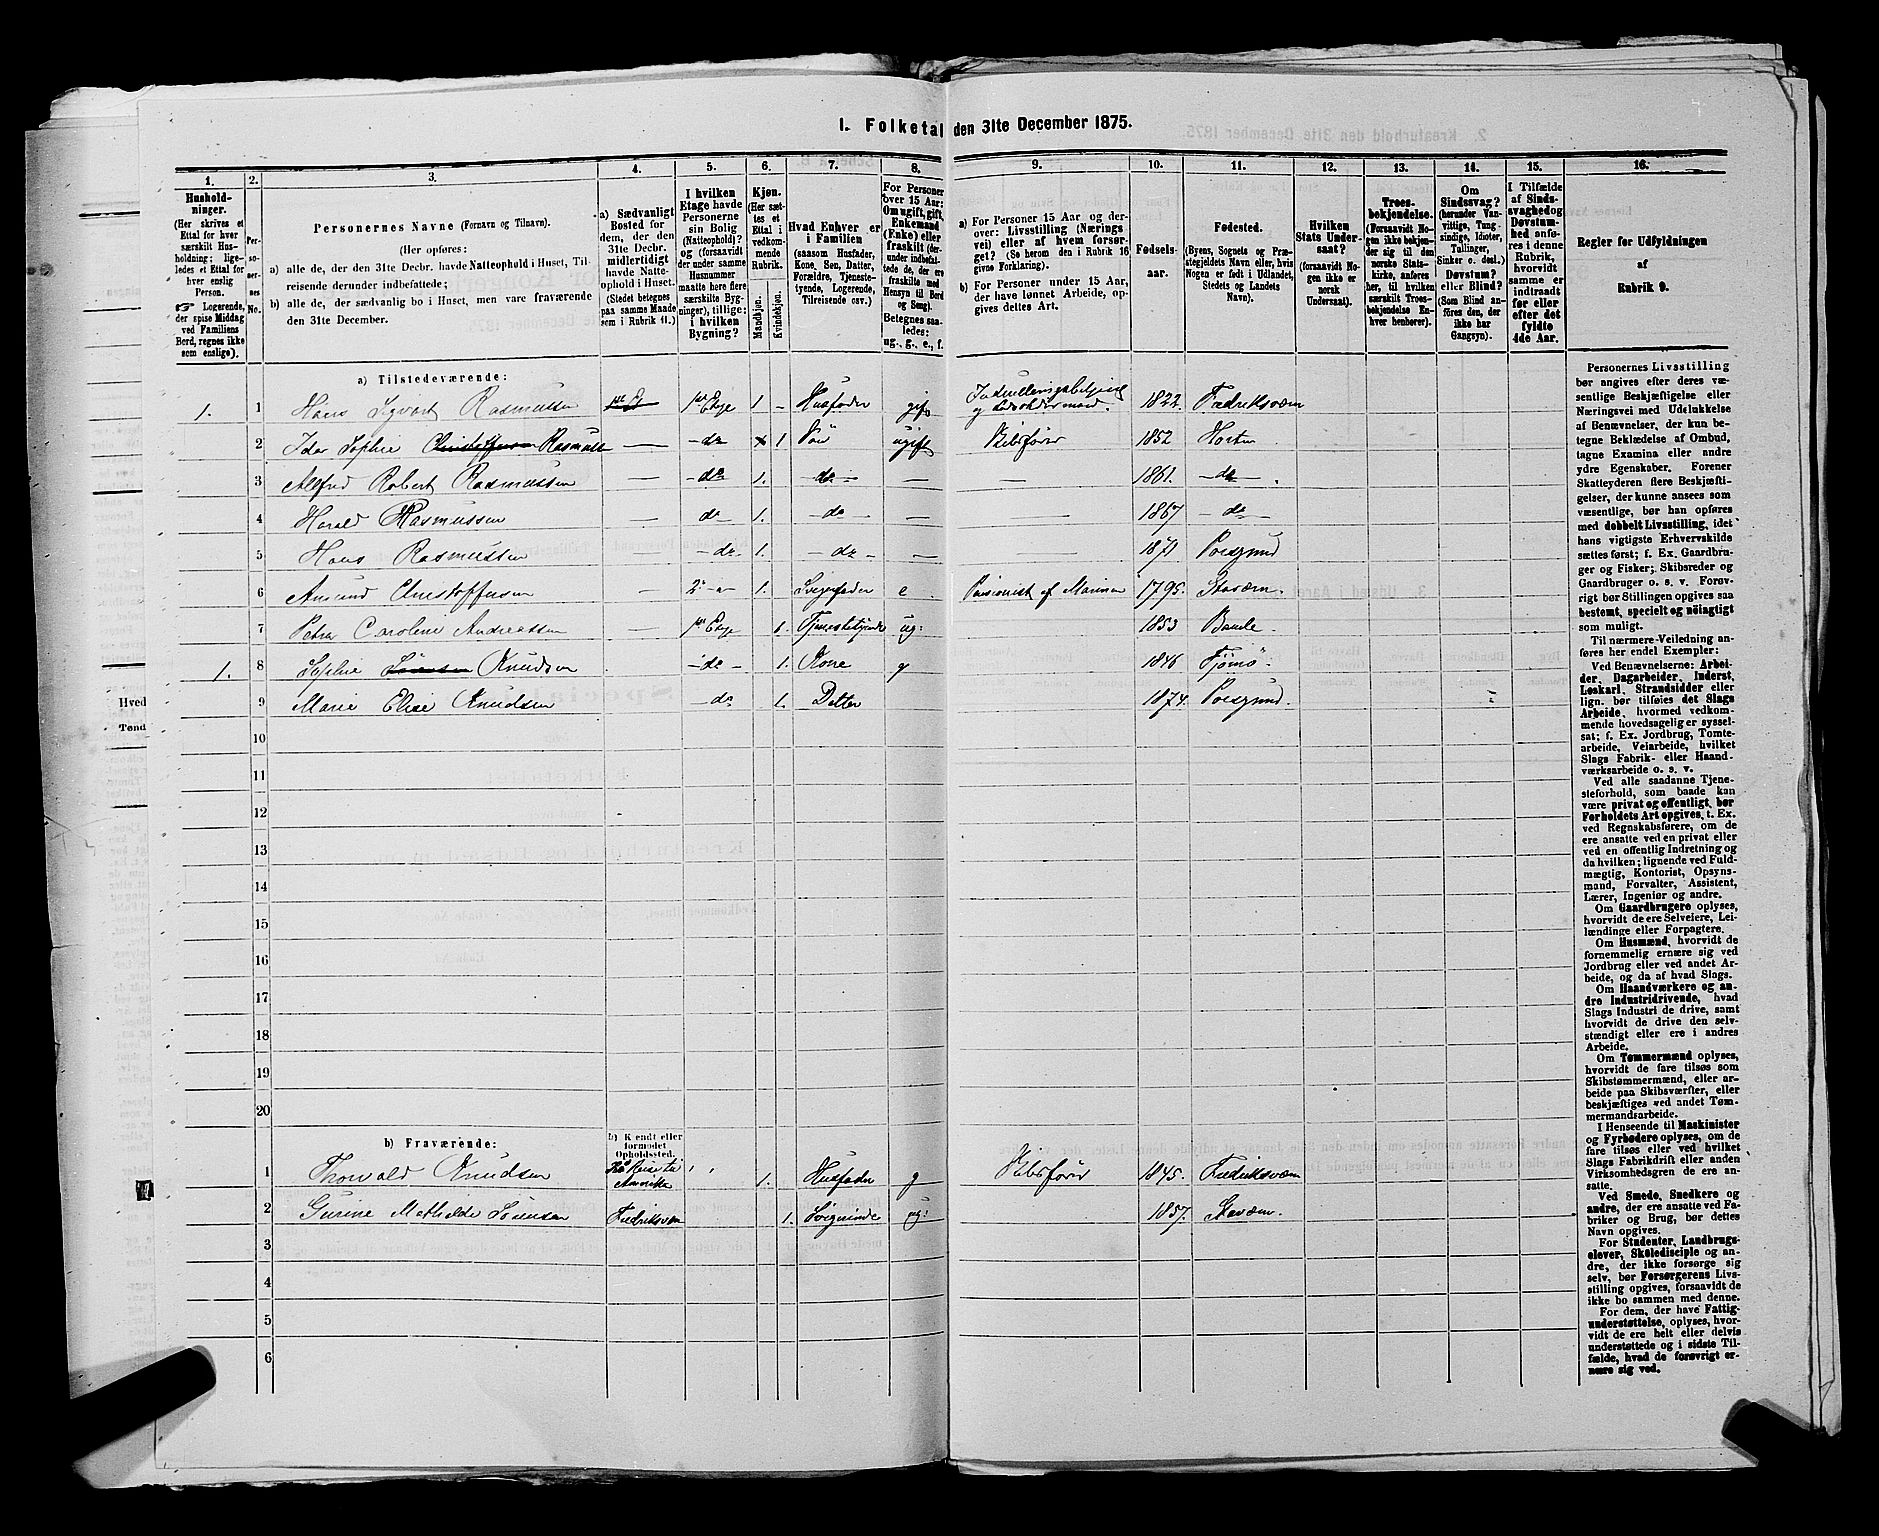 1. Folketal den 31te December 1875.
1. 2. 3. 4. 5. 6. 7. 8. 9. 10. 11. 12. 13. 14. 15. 16.
Hushold-
ninger.
(Her skrives et
Ettal for hver
særskilt Hus-
holdning; lige-
ledes et Ettal for
hver enslig
Person.
☞ Logerende,
der spise Middag
ved Familiens
Bord, regnes ikke
som enslige).
Per-
so-
ner-
nes
No.
Personernes Navne (Fornavn og Tilnavn).
(Her opføres:
a) alle de, der den 31te Decbr. havde Natteophold i Huset, Til-
reisende derunder indbefattede;
b) alle de, der sædvanlig bo i Huset, men vare fraværende
den 31te December.
a) Sædvanligt
Bosted for
dem, der den
31te Decbr.
midlertidigt
havde Natte-
ophold i Huset.
(Stedet betegnes
paa samme Maade
som i Rubrik 11.)
I hvilken
Etage havde
Personerne
sin Bolig
(Natteophold)?
og (forsaavidt
der under samme
Husnummer
maatte høre flere
særskilte Byg-
ninger), tillige:
i hvilken
Bygning?
Kjøn.
(Her sæt-
tes et
Ettal i
vedkom-
mende
Rubrik.
Mandkjøn.
Kvindekjøn.
Hvad Enhver er
i Familien
(saasom Husfader,
Kone, Søn, Datter,
Forældre, Tjeneste-
tyende, Logerende,
Tilreisende osv.)
For Personer
over 15 Aar:
Om ugift, gift,
Enkemand
(Enke) eller
fraskilt (der-
under indbefat-
tede de, der ere
fraskilte med
Hensyn til Bord
og Seng).
Betegnes saa-
ledes:
ug., g., e., f.
a) For Personer 15 Aar og der-
over: Livsstilling (Nærings
vei) eller af hvem forsør-
get? (Se herom den i Rubrik 16
givne Forklaring).
b) For Personer under 15 Aar,
der have lønnet Arbeide, op-
gives dettes Art.
Fødsels-
aar.
Fødested.
(Byens, Sognets og Præ-
stegjeldets Navn eller, hvis
Nogen er født i Udlandet,
Stedets og Landets
Navn).
Hvilken
Stats Under-
saat?
(forsaavidt No-
gen ikke er
norsk
Undersaat).
Troes-
bekjendelse.
(Forsaavidt No-
gen ikke bekjen-
der sig til den
norske Stats-
kirke, anføres
her, til hvilken
særskilt Troes-
bekjendelse En-
hver henhører).
Om
Sindssvag?
(herunder Van-
vittige, Tung-
sindige, Idioter,
Tullinger,
Sinker o. desl.)
Døvstum?
eller Blind?
(Som Blind an-
føres den, der
ikke har
Gangsyn).
I Tilfælde
af Sinds-
svaghed og
Døvstum-
hed anfø-
res i denne
Rubrik,
hvorvidt
samme er
indtraadt
før eller
efter det
fyldte
4de Aar.
Regler for Udfyldningen
af
Rubrik 9.
a) Tilstedeværende:
1. 1 Hans Sigvart Rasmussen 1ste Etage 1 - Husfader gift og 1822. Fredriksværn
2 Ida Sophie Christoffersen Rasmuss — - do 1 ugift 1852 Horten
3 Alfred Robert Rasmussen — - do 1. - do - — — 1861. - do - .
4 Harald Rasmussen — do - 1. - do - — — 1867 - do -
5 Hans Rasmussen — - do. 1. - do - — — 1871 Porsgrund
6 Amund Christoffersen — 2 - 1. Svigerfader e Pensionist af Marinen 1795. Staværn.
7 Petra Caroline Andreassen — 1ste Etage 1. Tjenestetyende ug: 1853 Bamle.
1. 8 Sophie Knudsen - do - 1. Kone g 1846 Tjømø.
9 Marie Elise Knudsen - do 1. Datter 1874. Porsgrund.
10
11
12
13
14
15
16
17
18
19
20
b) Fraværende:
b) Kjendt eller
formodet
Opholdssted.
1 Thorvald Knudsen Paa Reise til Amerika 1. Husfader g 1845. Fredriksværn
2 Gurine Mathilde Fredriksværn 1. ug: 1857. Staværn.
3
4
5
6
Personernes Livsstilling
bør angives efter deres væ-
sentlige Beskjæftigelse eller
Næringsvei med Udelukkelse
af Benævnelser, der kun be-
tegne Beklædelse af Ombud,
tagne Examina eller andre
ydre Egenskaber. Forener
Skatteyderen flere Beskjæfti-
gelser, der kunne ansees som
væsentlige, bør han opføres
med dobbelt Livsstilling, idet
hans vigtigste Erhvervskilde
sættes først; f. Ex. Gaardbru-
ger og Fisker; Skibsreder og
Gaardbruger o. s. v. Forøv-
rigt bør Stillingen opgives saa
bestemt, specielt og nöiagtigt
som muligt.
Til nærmere Veiledning an-
føres her endel Exempler:
Ved Benævnelserne: Arbei-
der, Dagarbeider, Inderst,
Løskarl, Strandsidder eller
lign. bør tilføies det Slags
Arbeide, hvormed vedkom-
mende hovedsagelig er syssel-
sat; f. Ex. Jordbrug, Tomte-
arbeide, Veiarbeide, hvilket
Slags Fabrik- eller Haand-
værksarbeide o. s. v.
Ved alle saadanne Tjene-
steforhold, som baade kan
være privat og offentligt, bør
Forholdets Art opgives, t. Ex.
ved Regnskabsførere, om de
ere ansatte ved en privat eller
ved en offentlig Indretning og
da hvilken; lignende ved Fuld-
mægtig, Kontorist, Opsyns-
mand, Forvalter, Assistent,
Lærer, Ingeniør og andre.
Om Gaardbrugere oplyses,
hvorvidt de ere Selveiere, Lei-
lændinge eller Forpagtere.
Om Husmænd, hvorvidt de
fornemmelig ernære sig ved
Jordbrug eller ved andet Ar-
beide, og da af hvad Slags.
Om Haandværkere og an-
dre Industridrivende, hvad
Slags Industri de drive, samt
hvorvidt de drive den selv-
stændigt eller ere i andres
Arbeide.
Om Tømmermænd oplyses,
hvorvidt de fare tilsøs som
Skibstømmermænd, eller ar-
beide paa Skibsværfter, eller
beskjæftiges ved andet Tøm-
mermandsarbeide.
I Henseende til Maskinister
og Fyrbødere oplyses, om de
fare tilsøs eller ved hvilket
Slags Fabrikdrift eller anden
Virksomhedsgren de ere an-
satte.
Ved Smede, Snedkere og
andre, der ere ansatte ved Fa-
briker og Brug, bør dettes
Navn opgives.
For Studenter, Landbrugs-
elever, Skoledisciple og an-
dre, der ikke forsørge sig
selv, bør Forsørgerens Livs-
stilling opgives, forsaavidt de
ikke bo sammen med denne.
For dem, der have Fattig-
understøttelse, oplyses, hvor-
vidt de ere helt eller delvis
understøttede og i sidste Til-
fælde, hvad de forøvrigt er-
nære sig ved.